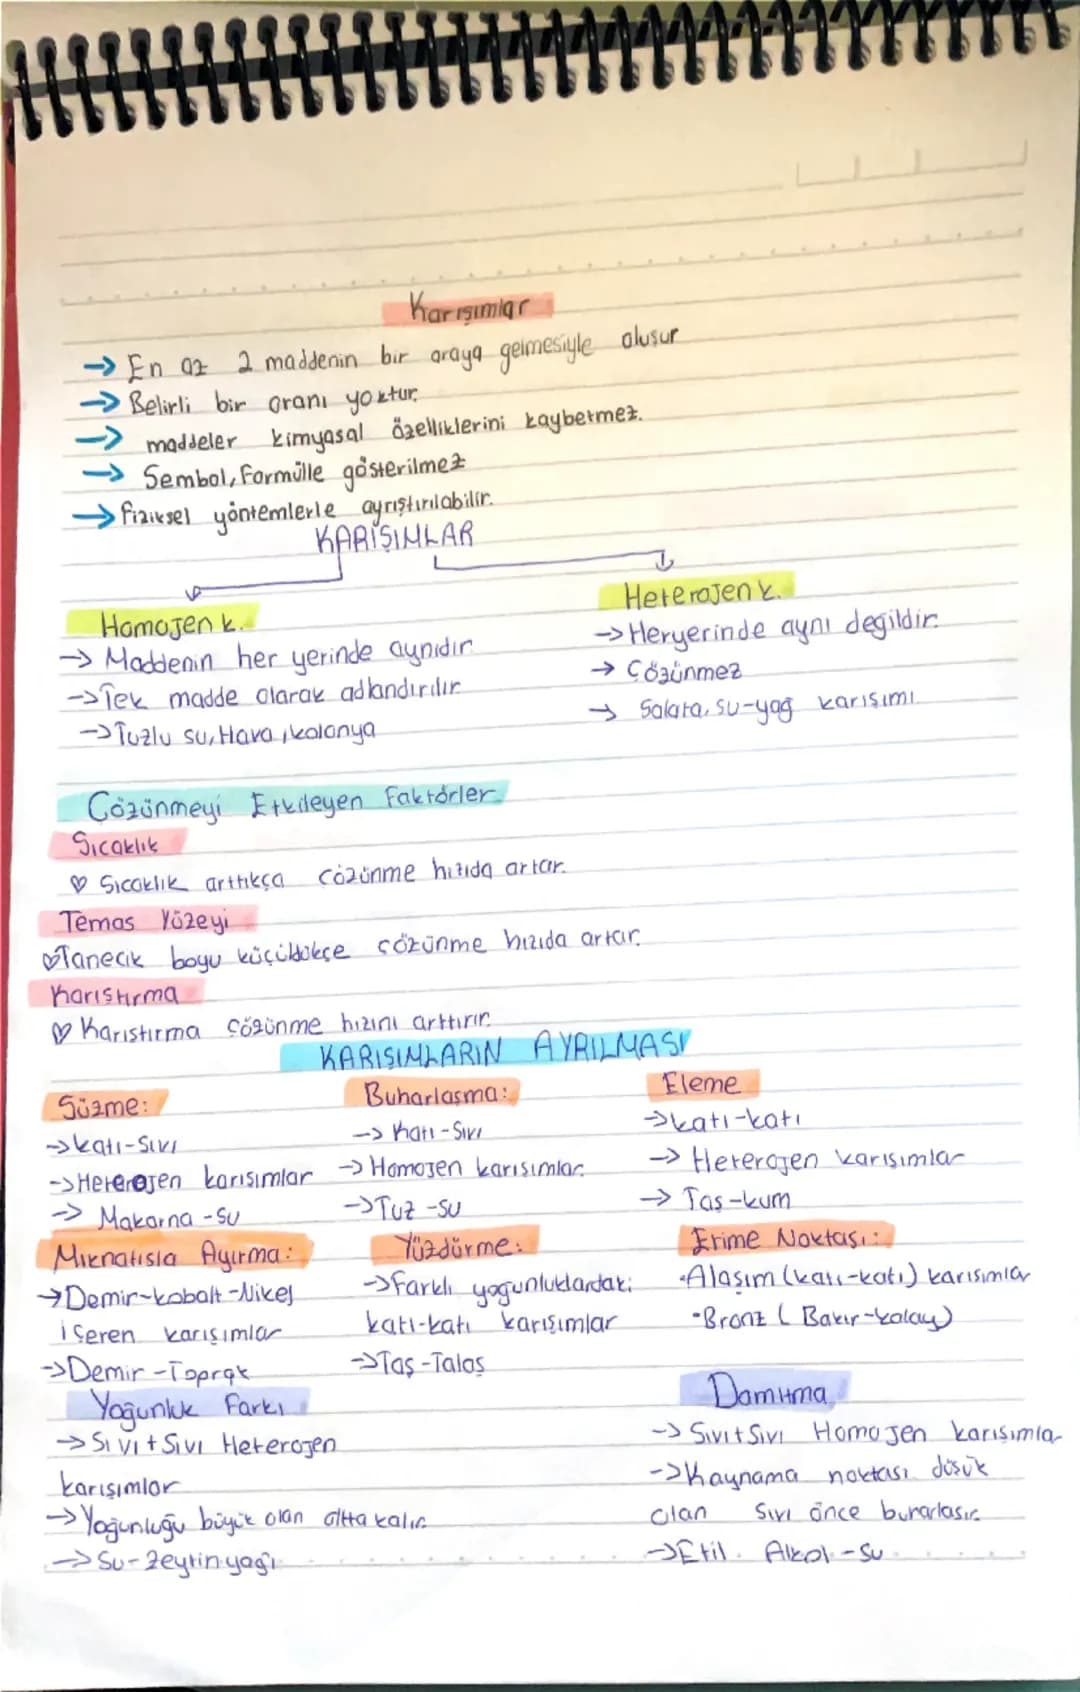 Karışımlar
→ En az 2 maddenin bir araya gelmesiyle oluşur
→ Belirli bir oranı yoktur.
→ maddeler kimyasal özelliklerini kaybetmez.
→ Sembol, Formülle gösterilmez
→ fiziksel yöntemlerle ayrıştırılabilir.
KARIŞIMLAR
Homojen k.
→ Maddenin her yerinde aynıdır
→ Tek madde olarak adlandırılır
→ Tuzlu su, Hava, kolonya
Heterojen k.
→ Heryerinde aynı değildir.
→ Çözünmez
→ Salata, su-yağ karısımı
Çözünmeyi Etkileyen Faktörler
Sıcaklık
♡ Sıcaklık arttıkça çözünme hızıda artar.
Temas Yüzeyi
♡ Tanecik boyu küçüldükçe çözünme hızıda artar.
Karıstırma
♡ Karıstırma çözünme hızını arttırır.
KARIŞIMLARIN AYRILMASI
Süzme:
→ katı-Sıvı
→ Heterojen karısımlar
→ Makarna-su
Buharlaşma:
→ Katı-Sıvı
→ Homojen karısımlar.
→ Tuz-su
Eleme
→ katı-katı
→ Heterojen karısımlar
→ Taş-kum
Mıknatısla Ayırma:
→ Demir-kobalt-Nikel
içeren karışımlar
→ Demir-Toprak
Yüzdürme:
→ Farklı yoğunluklardaki
katı-katı karışımlar
→ Taş-Talaş
Erime Noktası:
• Alaşım (katı-katı) karısımlar
• Bronz (Bakır-kolay)
Yoğunluk Farkı
→ Sıvı+Sıvı Heterojen
karışımlar
→ Yoğunluğu büyük olan altta kalır.
→ Su-Zeytinyağı
Damıtma
→ Sıvı+Sıvı Homojen karışımla
→ Kaynama noktası düşük
olan Sıvı önce buharlaşır.
→ Etil Alkol-su